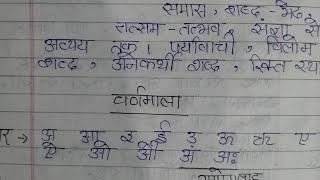 समास, शब्द - भेद
तत्सम - तद्भव, संज्ञा से
अव्यय तक। पर्यायवाची, विलोम
शब्द, अनेकार्थी शब्द, रिक्त स्था
वर्णमाला
र → अ आ इ ई उ ऊ ऋ ए
ऐ ओ औ अं अः